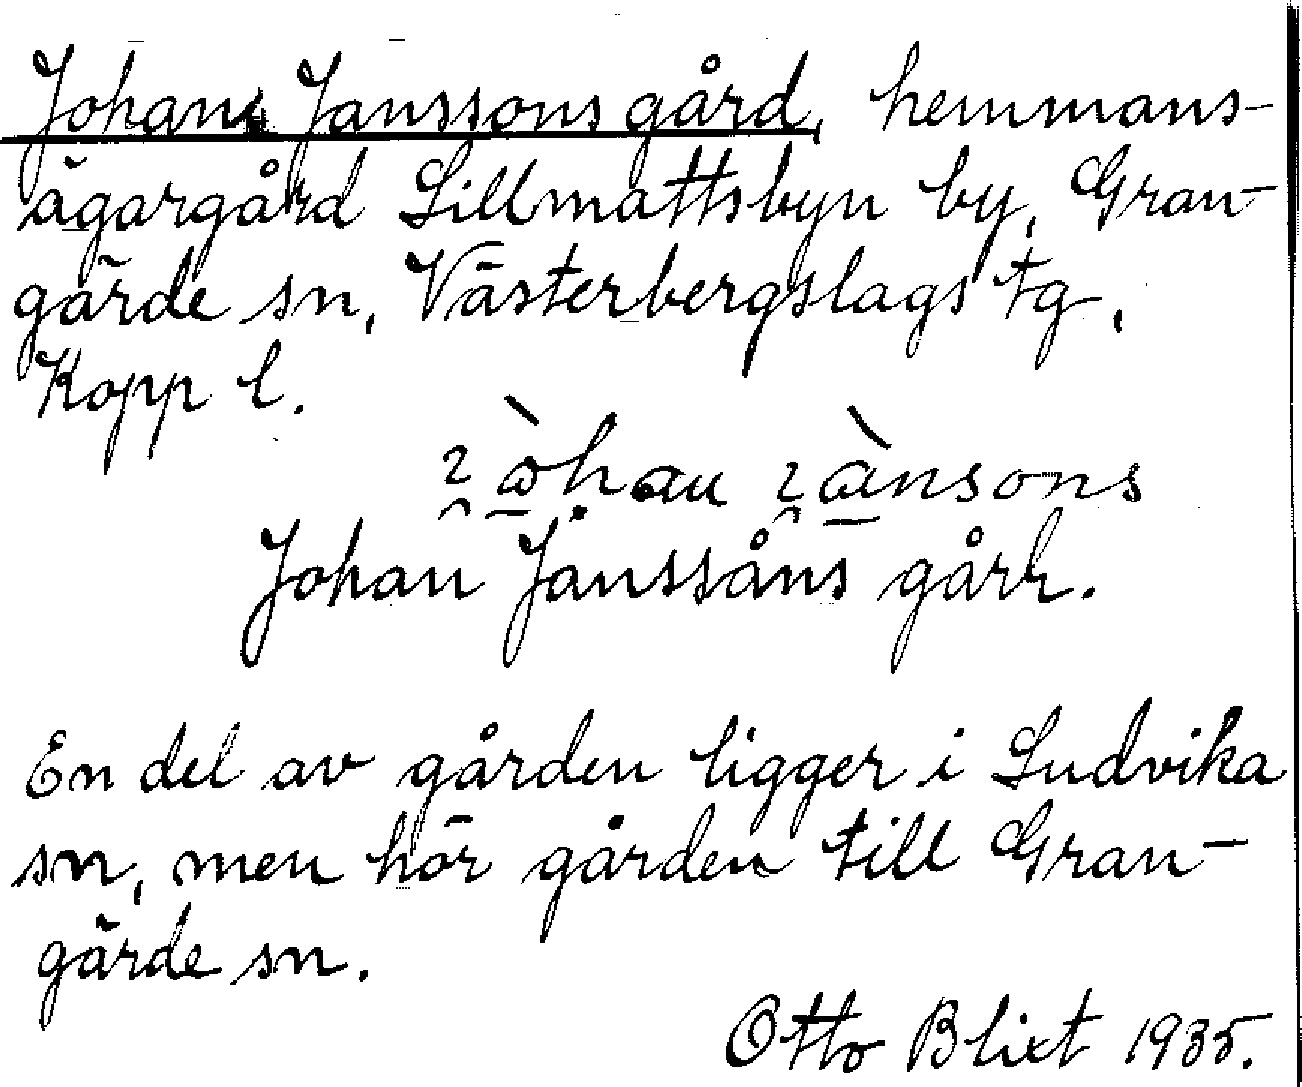 Johan Janssons gård, hemmans-
ägargård Lillmattsbyn by, Gran-
gärde sn, Västerbergslags tg,
Kopp l.
Johan Jånssåns gårk.
En del av gården ligger i Ludvika
sn, men hör gården till Gran-
gärde sn.
Otto Blixt 1935.